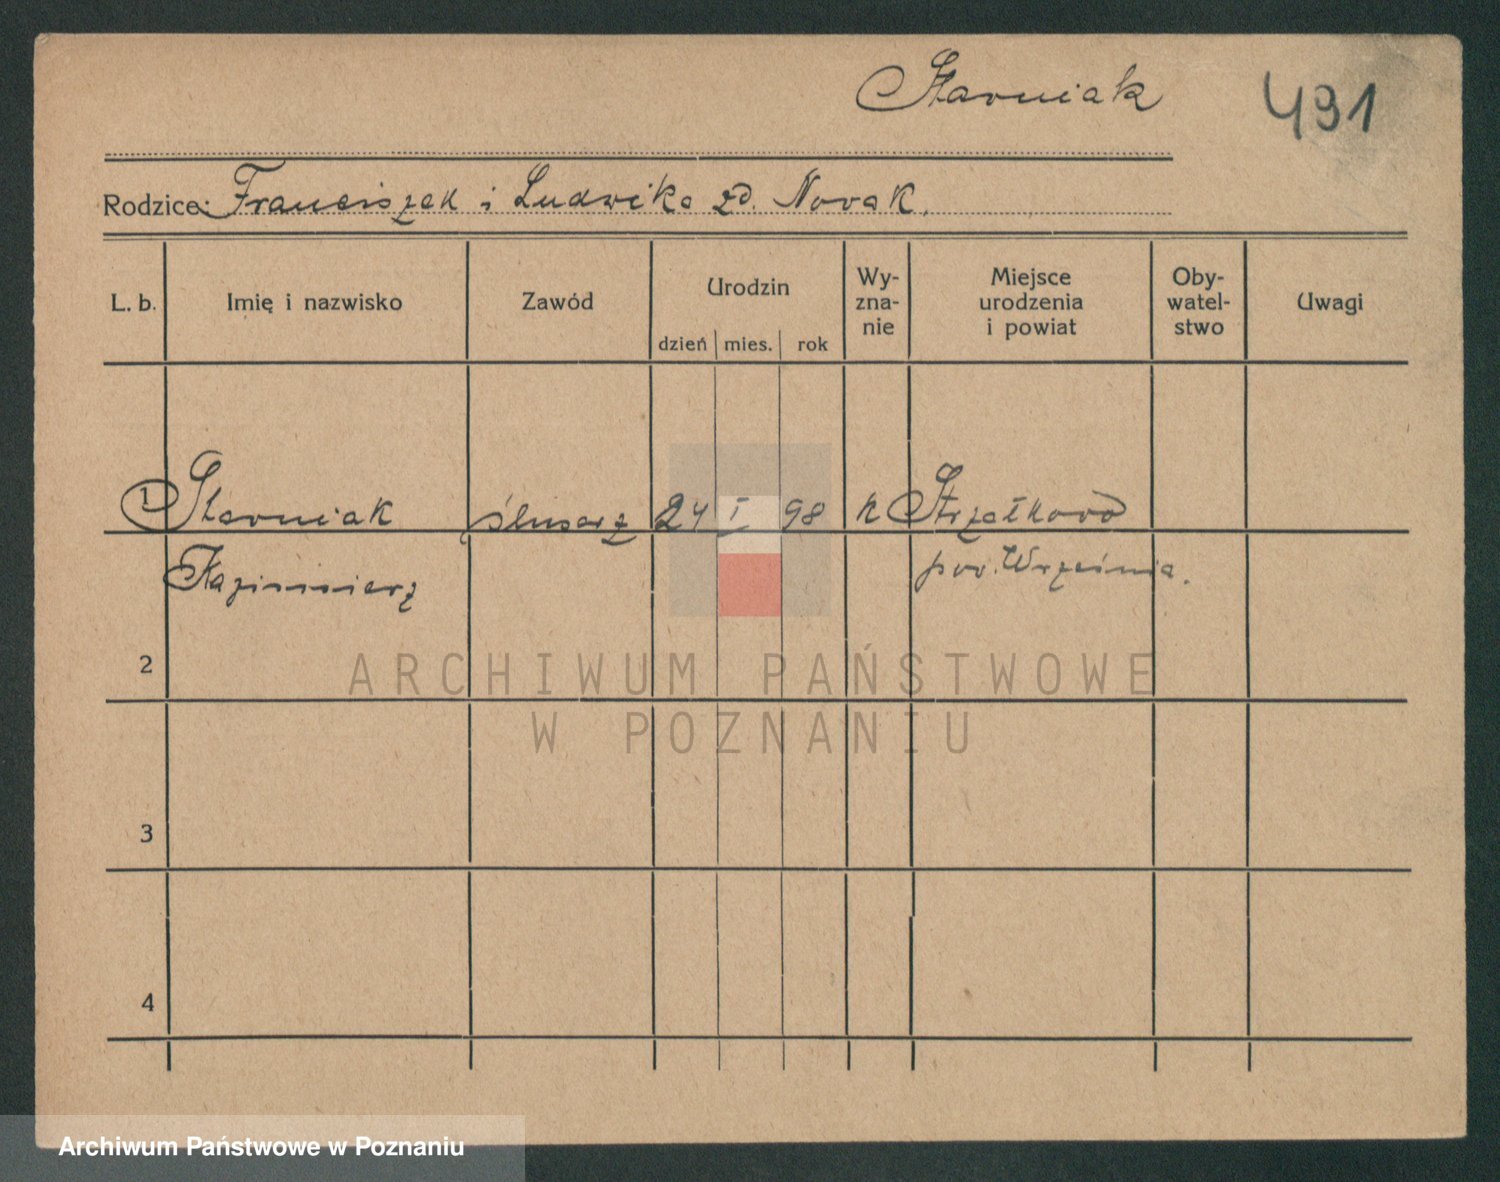 Stavniak
491
Rodzice: Franciszek i Ludwika zd. Novak.
L. b.
Imię i nazwisko
Zawód
Urodzin
dzień mies. rok
Wy-
zna-
nie
Miejsce
urodzenia
i powiat
Oby-
watel-
stwo
Uwagi
1 Stavniak ślusarz 24 I 98 k Strzałkovo
Kazimierz pov. Września.
2
3
4
ARCHIWUM PAŃSTWOWE
W POZNANIU
Archiwum Państwowe w Poznaniu